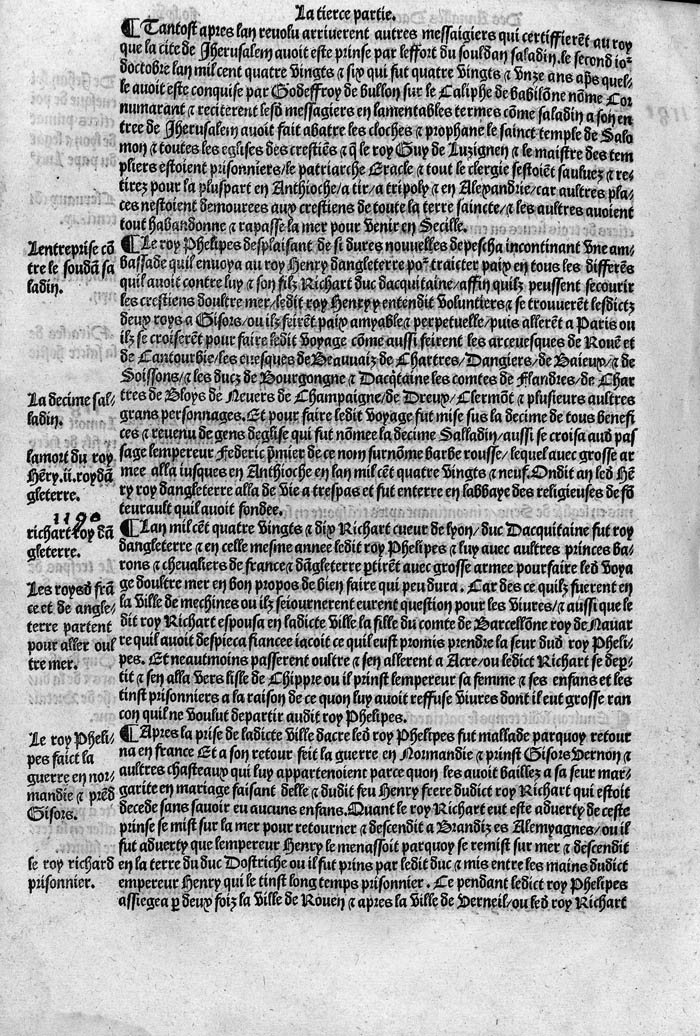 La tierce partie.
¶Tantost apres lan revolu arriverent autres messaigiers qui certiffierẽt au roy
que la cite de Jherusalem avoit este prinse par leffort du souldan saladin. le second ioꝛ
doctobre lan mil cent quatre vingts ⁊ six qui fut quatre vingts ⁊ Vnze ans ap̃s quel-
le avoit este conquise par Godeffroy de bullon sur le Caliphe de babilõne nõme Cor
numarant ⁊ reciterent lesd messagiers en lamentables termes cõme saladin a son en
tree de Jherusalem avoit fait abatre les cloches ⁊ prophane le sainct temple de Salo
mon ⁊ toutes les eglises des crestiẽs ⁊ q̃ le roy Guy de Luzignen ⁊ le maistre des tem
pliers estoient prisonniers/le patriarche Eracle ⁊ tout le clergie sestoiẽt sauluez ⁊ re-
tirez pour la pluspart en Anthioche/a tir/a tripoly ⁊ en Alexandrie/car aultres pla-
ces nestoient demourees aux crestiens de toute la terre saincte/⁊ les aultres avoient
tout habandonne ⁊ rapasse la mer pour venir en Secille.
¶Le roy Phelipes desplaisant de si dures nouvelles depescha incontinant Vne am-
bassade quil envoya au roy Henry dangleterre poꝛ traicter paix en tous les differẽs
quil avoit contre luy ⁊ son filz Richart duc dacquitaine/affin quilz peussent secourir
les crestiens doultre mer/ledit roy Henry y entendit Voluntiers ⁊ se trouverẽt lesdictz
deux roys a Gisors/ou ilz feirẽt paix amyable ⁊ perpetuelle/puis allerẽt a Paris ou
ilz se croiserẽt pour faire ledit Voyage cõme aussi feirent les arcevesques de Rouẽ et
de Cantourbie/les evesques de Beauvaiz de Chartres/Dangiers/de Baieux/⁊ de
Soissons/⁊ les ducz de Bourgongne ⁊ Dacq̃taine les comtes de Flandres/de Char
tres de Bloys de Nevers de Champaigne/de Dreux/Clermõt ⁊ plusieurs aultres
grans personnages. Et pour faire ledit Voyage fut mise sus la decime de tous benefi
ces ⁊ revenu de gens deglise qui fut nõmee la decime Salladin/aussi se croisa aud pas
sage lempereur Federic p̃mier de ce nom surnõme barbe rousse/lequel avec grosse ar
mee alla iusques en Anthioche en lan mil cẽt quatre vingts ⁊ neuf. Ondit an led Hẽ
ry roy dangleterre alla de vie a trespas et fut enterre en labbaye des religieuses de fõ
teurault quil avoit fondee.
¶Lan mil cẽt quatre vingts ⁊ dix Richart cueur de lyon/duc Dacquitaine fut roy
dangleterre ⁊ en celle mesme annee ledit roy Phelipes ⁊ luy avec aultres princes ba-
rons ⁊ chevaliers de france ⁊ dãgleterre ptirẽt avec grosse armee pour faire led Voya
ge doultre mer en bon propos de bien faire qui peu dura. Car des ce quilz fuerent en
la ville de mechines ou ilz seiournerent eurent question pour les vivres/⁊ aussi que le
dit roy Richart espousa en ladicte Ville la fille du comte de Barcellõne roy de Navar
re quil avoit despieca fiancee iacoit ce quil eust promis prendre la seur dud roy Pheli-
pes. Et neautmoins passerent oultre ⁊ sen allerent a Acre/ou ledict Richart se dep̃-
tit ⁊ sen alla vers lisle de Chippre ou il prinst lempereur sa femme ⁊ ses enfans et les
tinst prisonniers a la raison de ce quon luy avoit reffuse vivres dont il eut grosse ran
con quil ne voulut departir audit roy Phelipes.
¶Apres la prise de ladicte Ville dacre led roy Phelipes fut mallade parquoy retour
na en france Et a son retour feit la guerre en Normandie ⁊ prinst Gisors Vernon ⁊
aultres chasteaux qui luy appartenoient parce quon les avoit baillez a sa seur mar-
garite en mariage faisant delle ⁊ dudit feu Henry frere dudict roy Richart qui estoit
decede sans savoir eu aucuns enfans. Quant le roy Richart eut este adverty de ceste
prinse se mist sur la mer pour retourner ⁊ descendit a Brandiz es Alemyagnes/ou il
fut adverty que lempereur Henry le menassoit parquoy se remist sur mer ⁊ descendit
en la terre du duc Dostriche ou il fut prins par ledit duc ⁊ mis entre les mains dudict
empereur Henry qui le tinst long temps prisonnier. Ce pendant ledict roy Phelipes
assiegea p deux foiz la ville de Rouen ⁊ apres la ville de Verneil/ou led roy Richart
Lentreprise cõ
tre le soudã sa
ladin.
La decime sal-
ladin.
lamort du roy
Hẽry.ii.roydã
gleterre.
1190
richart roy dã
gleterre.
Les roysd frã
ce et de angle-
terre partent
pour aller oul
tre mer.
Le roy Pheli-
pes faict la
guerre en nor-
mandie ⁊ prẽd
Gisors.
le roy richard
prisonnier.